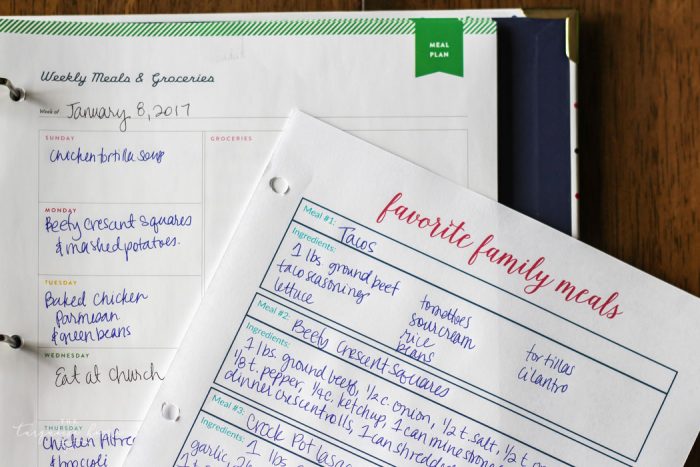 MEAL
PLAN
Weekly Meals & Groceries
Week of January 8, 2017
SUNDAY
chicken tortilla soup
MONDAY
Beefy Cresant Squares
& mashed potatoes.
TUESDAY
Baked Chicken
Parmesan
& green beans
WEDNESDAY
Eat at Church
THURSDAY
Chicken Alfredo
& broccoli
GROCERIES
favorite family meals
Meal #1: Tacos
Ingredients:
1 lbs. ground beef
taco seasoning
lettuce
tomatoes
sour cream
rice
beans
tortillas
cilantro
Meal #2: Beefy Crescent Squares
Ingredients:
1 lbs. ground beef, 1/2 c. onion, 1/2 t. salt, 1/2 t.
1/8 t. pepper, 1/4 c. ketchup, 1 can
dinner crescent rolls, 1 can
Meal #3: Crock Pot
Ingredients: 1 lbs.
garlic,